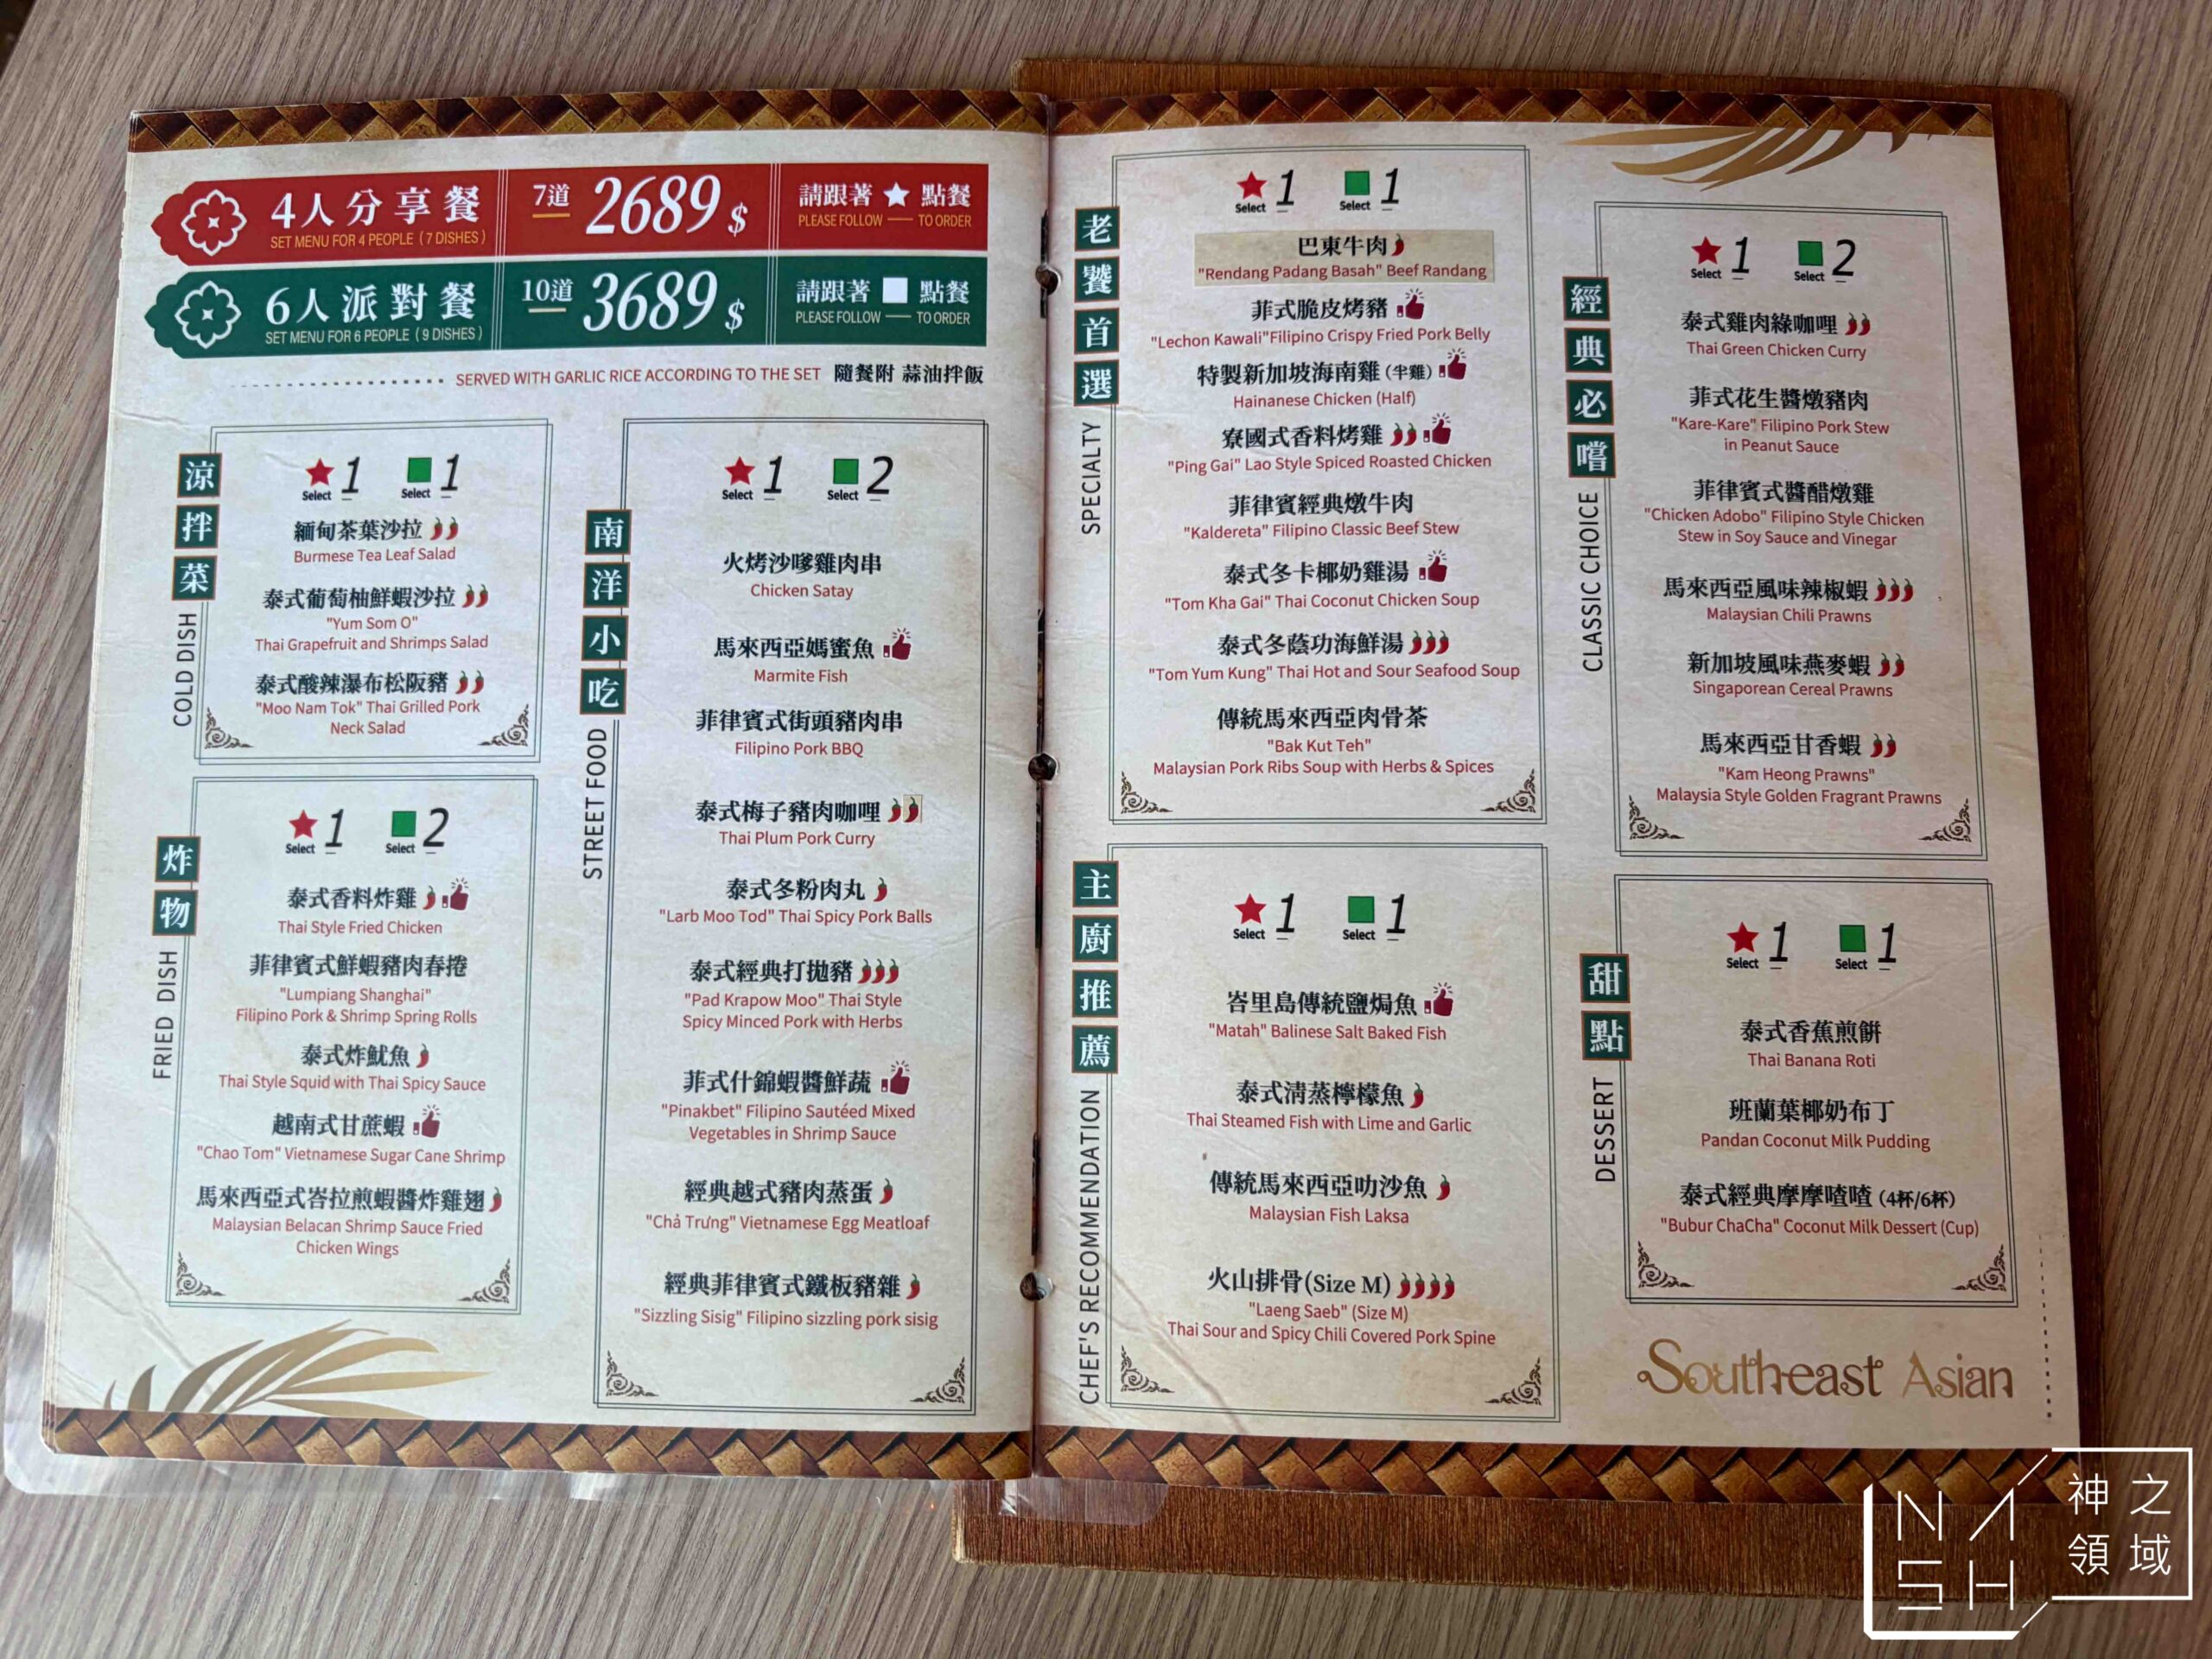 4人分享餐
SET MENU FOR 4 PEOPLE ( 7 DISHES )
7道 2689 $
請跟著 ★ 點餐
PLEASE FOLLOW — TO ORDER
6人派對餐
SET MENU FOR 6 PEOPLE ( 9 DISHES )
10道 3689 $
請跟著 ■ 點餐
PLEASE FOLLOW — TO ORDER
SERVED WITH GARLIC RICE ACCORDING TO THE SET 隨餐附 蒜油拌飯
涼拌菜
COLD DISH
★ Select 1 ■ Select 1
緬甸茶葉沙拉
Burmese Tea Leaf Salad
泰式葡萄柚鮮蝦沙拉
"Yum Som O"
Thai Grapefruit and Shrimps Salad
泰式酸辣瀑布松阪豬
"Moo Nam Tok" Thai Grilled Pork
Neck Salad
炸物
FRIED DISH
★ Select 1 ■ Select 2
泰式香料炸雞
Thai Style Fried Chicken
菲律賓式鮮蝦豬肉春捲
"Lumpiang Shanghai"
Filipino Pork & Shrimp Spring Rolls
泰式炸魷魚
Thai Style Squid with Thai Spicy Sauce
越南式甘蔗蝦
"Chao Tom" Vietnamese Sugar Cane Shrimp
馬來西亞式峇拉煎蝦醬炸雞翅
Malaysian Belacan Shrimp Sauce Fried
Chicken Wings
南洋小吃
STREET FOOD
★ Select 1 ■ Select 2
火烤沙嗲雞肉串
Chicken Satay
馬來西亞媽蜜魚
Marmite Fish
菲律賓式街頭豬肉串
Filipino Pork BBQ
泰式梅子豬肉咖哩
Thai Plum Pork Curry
泰式冬粉肉丸
"Larb Moo Tod" Thai Spicy Pork Balls
泰式經典打拋豬
"Pad Krapow Moo" Thai Style
Spicy Minced Pork with Herbs
菲式什錦蝦醬鮮蔬
"Pinakbet" Filipino Sautéed Mixed
Vegetables in Shrimp Sauce
經典越式豬肉蒸蛋
"Chả Trứng" Vietnamese Egg Meatloaf
經典菲律賓式鐵板豬雜
"Sizzling Sisig" Filipino sizzling pork sisig
老饕首選
SPECIALTY
★ Select 1 ■ Select 1
巴東牛肉
"Rendang Padang Basah" Beef Randang
菲式脆皮烤豬
"Lechon Kawali"Filipino Crispy Fried Pork Belly
特製新加坡海南雞 (半雞)
Hainanese Chicken (Half)
寮國式香料烤雞
"Ping Gai" Lao Style Spiced Roasted Chicken
菲律賓經典燉牛肉
"Kaldereta" Filipino Classic Beef Stew
泰式冬卡椰奶雞湯
"Tom Kha Gai" Thai Coconut Chicken Soup
泰式冬蔭功海鮮湯
"Tom Yum Kung" Thai Hot and Sour Seafood Soup
傳統馬來西亞肉骨茶
"Bak Kut Teh"
Malaysian Pork Ribs Soup with Herbs & Spices
主廚推薦
CHEF'S RECOMMENDATION
★ Select 1 ■ Select 1
峇里島傳統鹽焗魚
"Matah" Balinese Salt Baked Fish
泰式清蒸檸檬魚
Thai Steamed Fish with Lime and Garlic
傳統馬來西亞叻沙魚
Malaysian Fish Laksa
火山排骨(Size M)
"Laeng Saeb" (Size M)
Thai Sour and Spicy Chili Covered Pork Spine
經典必嚐
CLASSIC CHOICE
★ Select 1 ■ Select 2
泰式雞肉綠咖哩
Thai Green Chicken Curry
菲式花生醬燉豬肉
"Kare-Kare" Filipino Pork Stew
in Peanut Sauce
菲律賓式醬醋燉雞
"Chicken Adobo" Filipino Style Chicken
Stew in Soy Sauce and Vinegar
馬來西亞風味辣椒蝦
Malaysian Chili Prawns
新加坡風味燕麥蝦
Singaporean Cereal Prawns
馬來西亞甘香蝦
"Kam Heong Prawns"
Malaysia Style Golden Fragrant Prawns
甜點
DESSERT
★ Select 1 ■ Select 1
泰式香蕉煎餅
Thai Banana Roti
班蘭葉椰奶布丁
Pandan Coconut Milk Pudding
泰式經典摩摩喳喳 (4杯/6杯)
"Bubur ChaCha" Coconut Milk Dessert (Cup)
Southeast Asian
NASH
神之
領域